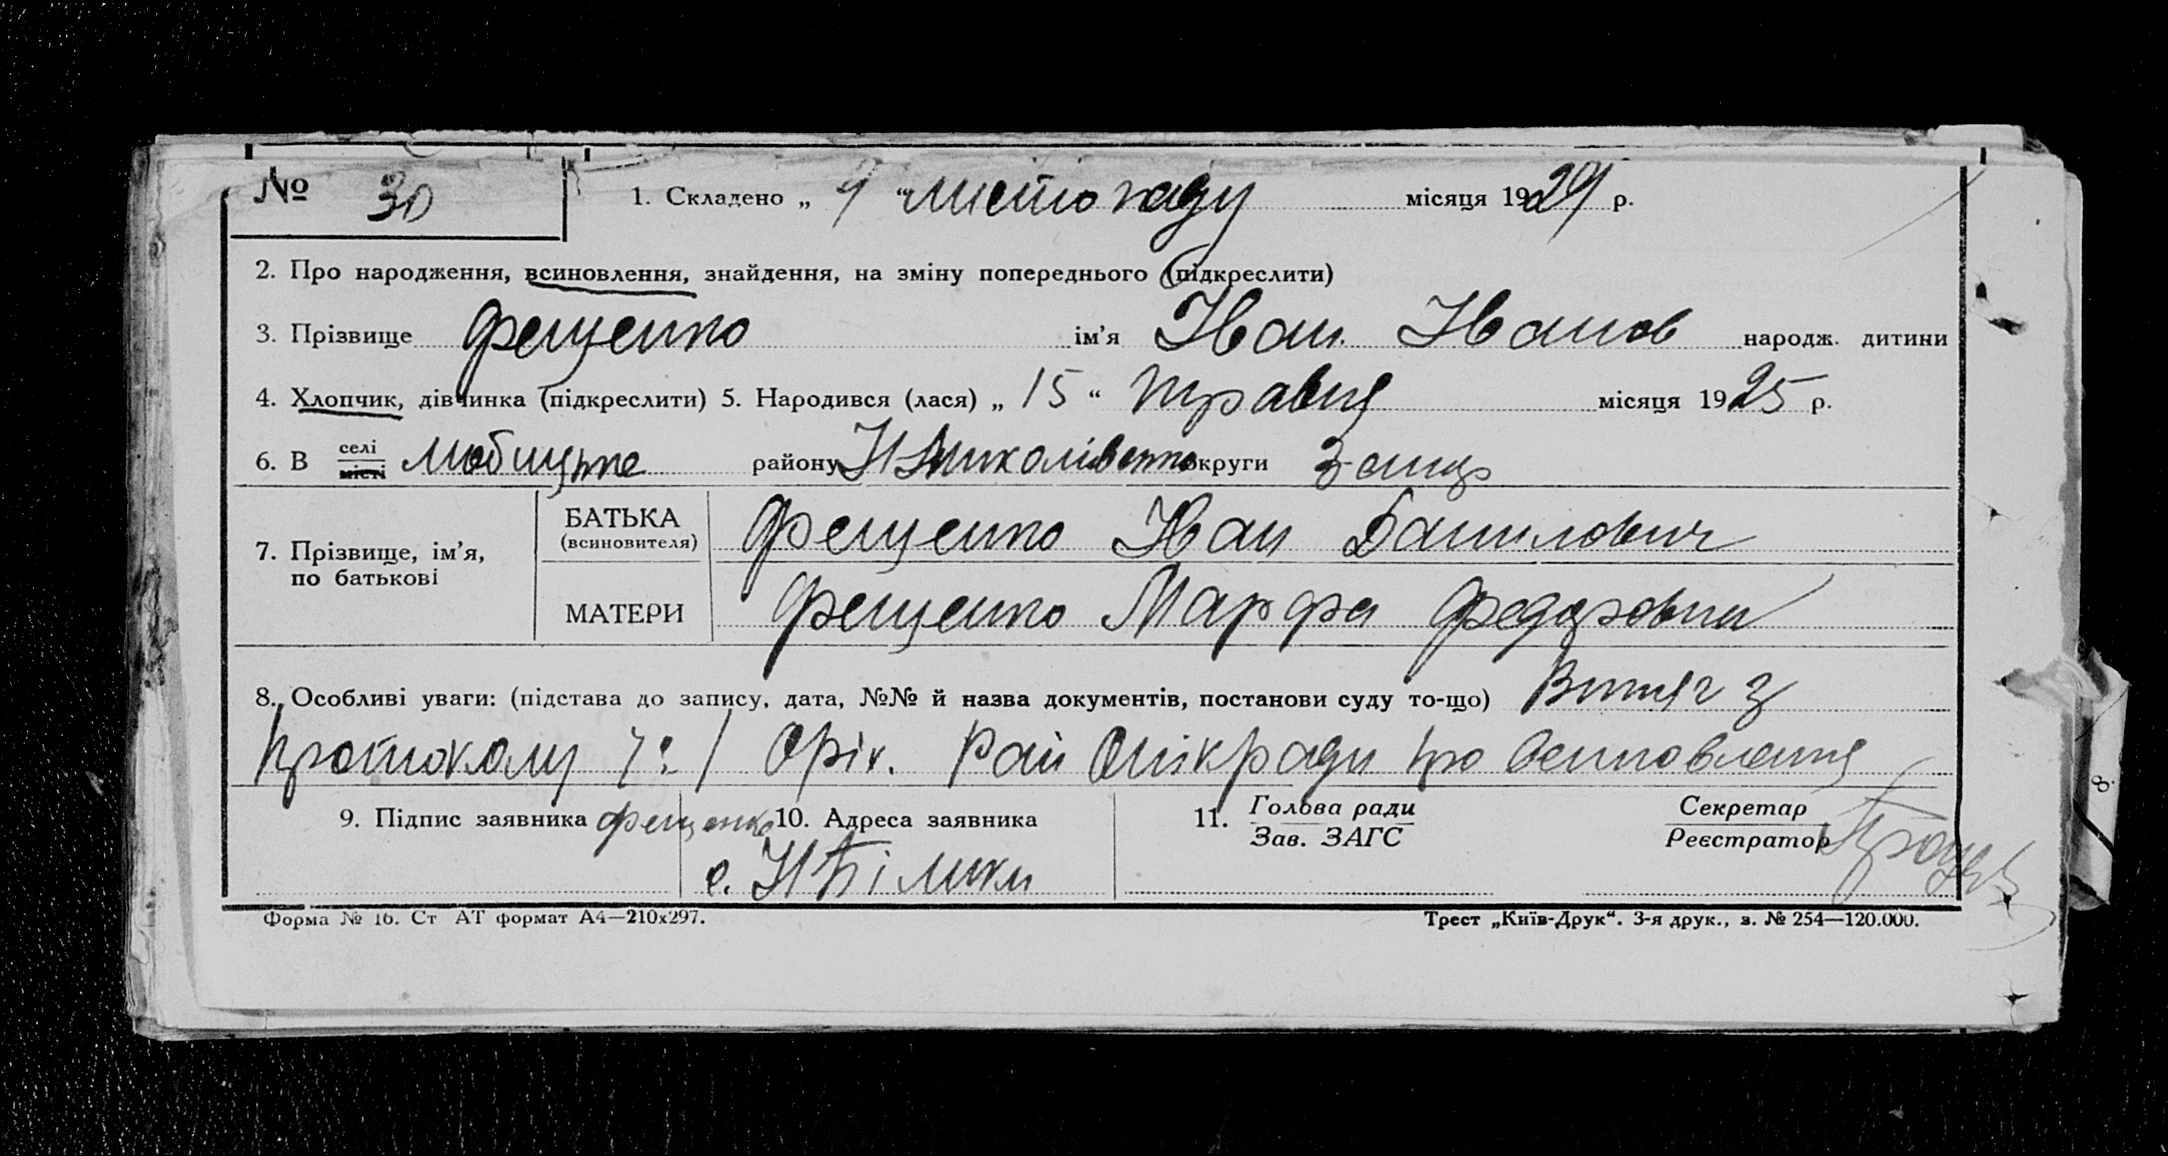 № 30
1. Складено „ 9 “ листопаду місяця 1929 р.
2. Про народження, всиновлення, знайдення, на зміну попереднього (підкреслити)
3. Прізвище Фещенко ім’я Іван Іванов народж. дитини
4. Хлопчик, дівчинка (підкреслити) 5. Народився (лася) „ 15 “ травня місяця 1925 р.
6. В селі місті Любицьке району округи Запор
7. Прізвище, ім’я, по батькові
БАТЬКА (всиновителя) Фещенко Іван Данилович
МАТЕРИ Фещенко Марфа Федоровна
8. Особливі уваги: (підстава до запису, дата, №№ й назва документів, постанови суду то-що) Витяг з
протоколу Оріх. Рай Опікради про всиновлення
9. Підпис заявника Фещенко 10. Адреса заявника 11. Голова ради Секретар
Зав. ЗАГС Реєстратор
с.
Форма № 16. Ст АТ формат А4—210х297. Трест „Київ-Друк“. 3-я друк., з. № 254—120.000.
8.